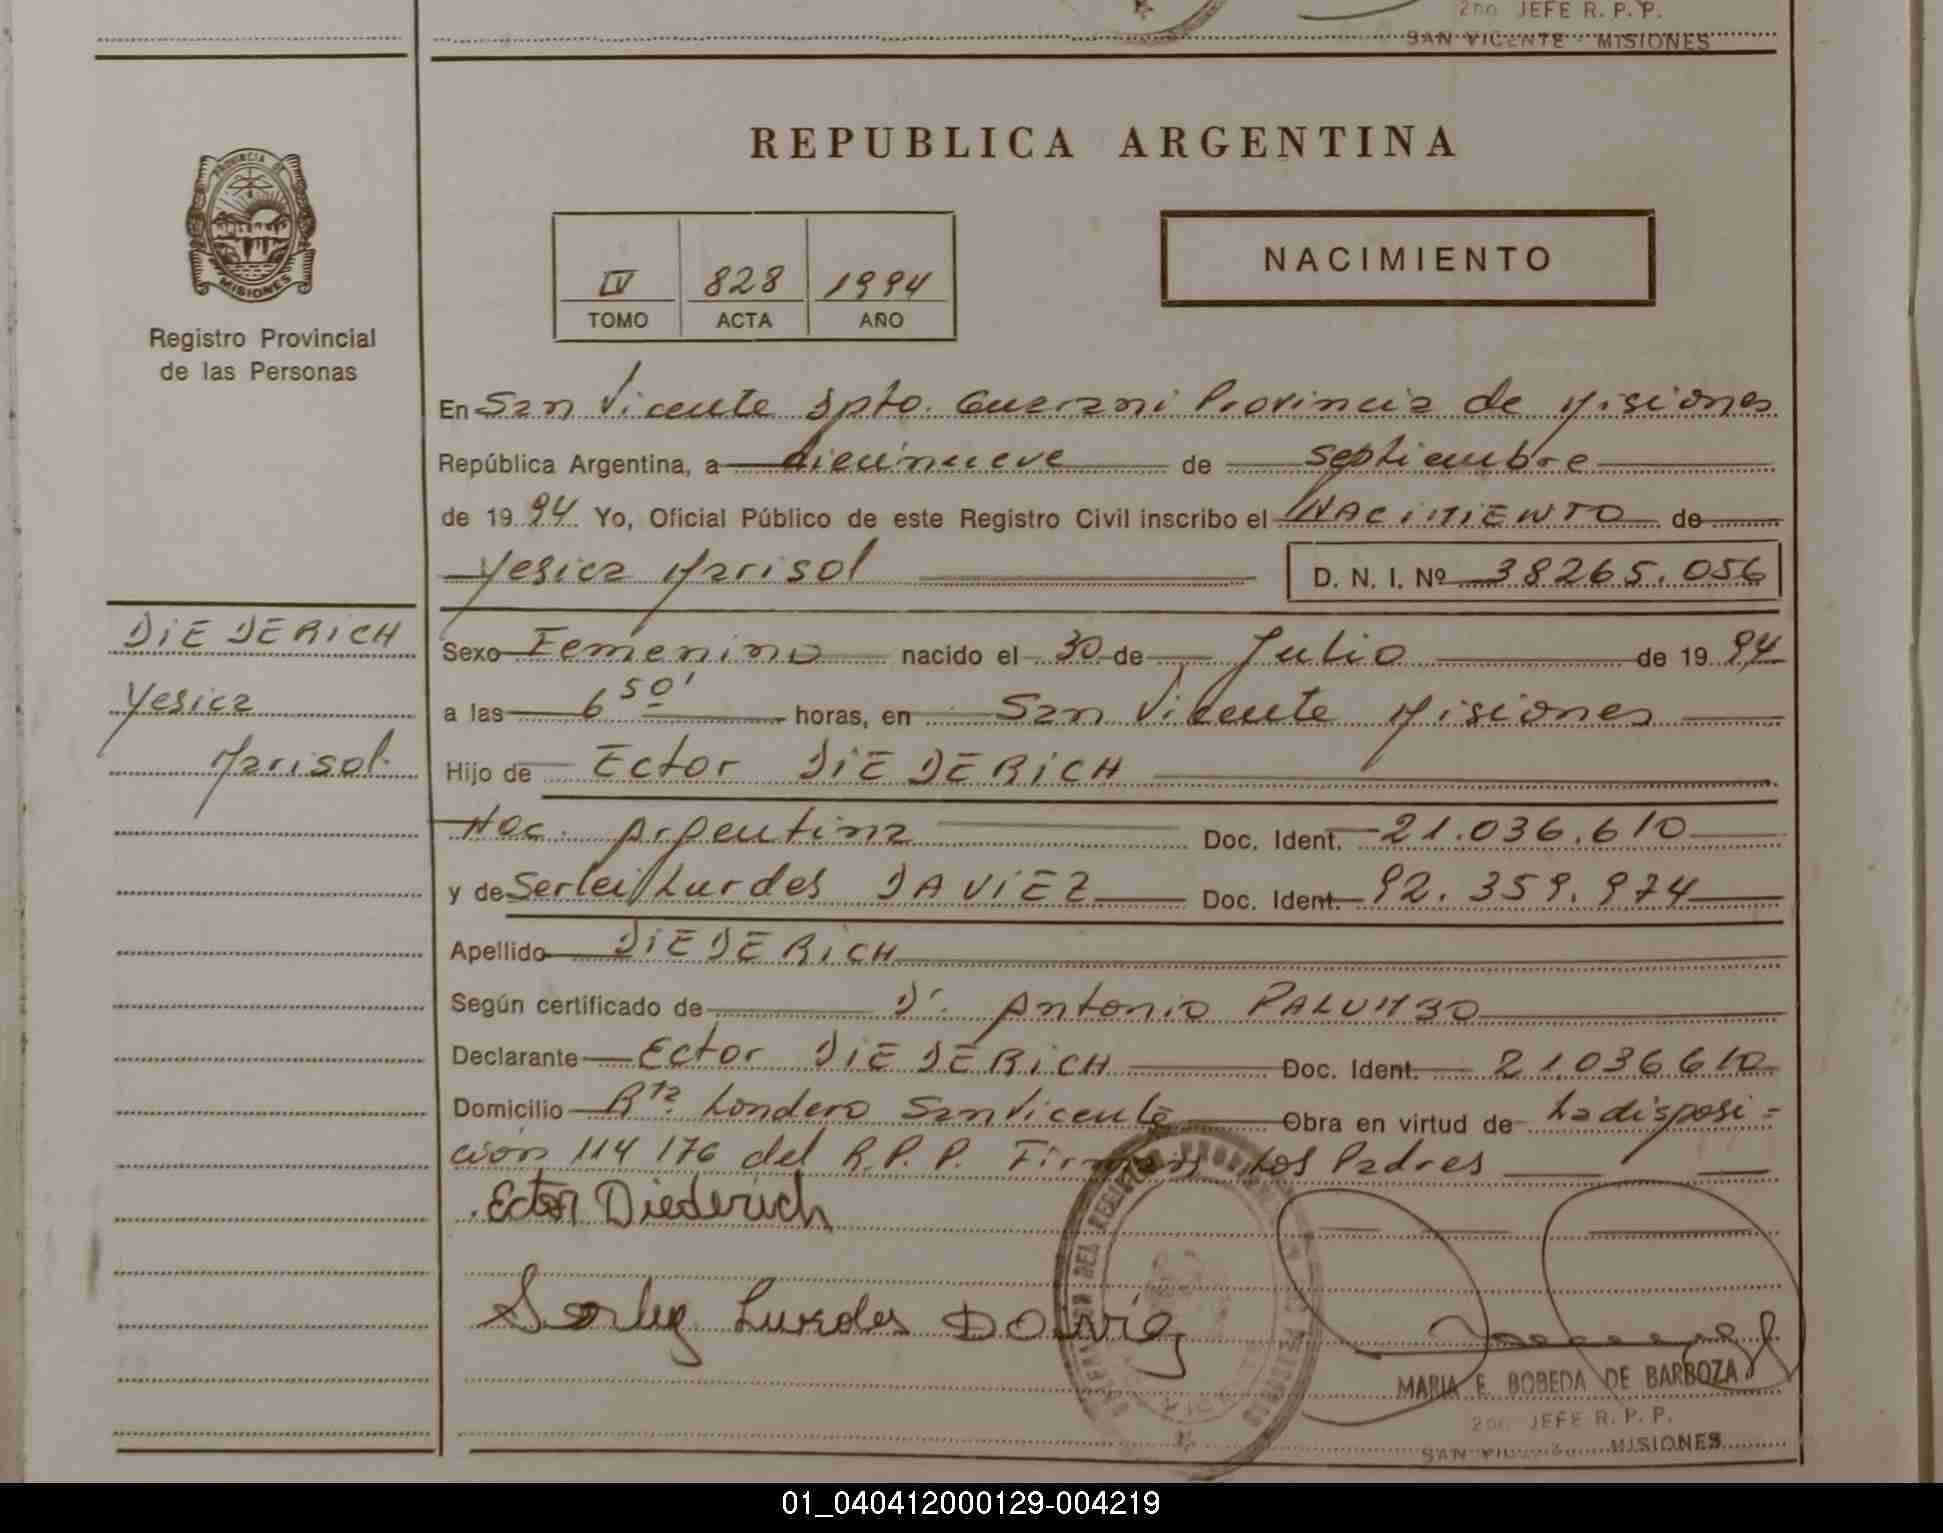 2do JEFE R. P. P.
SAN VICENTE - MISIONES
PROVINCIA DE
MISIONES
Registro Provincial
de las Personas
REPUBLICA ARGENTINA
IV 828 1994
TOMO ACTA AÑO
NACIMIENTO
En San Vicente Dpto. Guaraní Provincia de Misiones
República Argentina, a diecinueve de septiembre
de 1994 Yo, Oficial Público de este Registro Civil inscribo el NACIMIENTO de
Yesica Marisol D. N. I. Nº 38265.056
DIEDERICH
Yesica
Marisol
Sexo Femenino nacido el 30 de Julio de 1994
a las 6 50' horas, en San Vicente Misiones
Hijo de Ector DIEDERICH
Nac. Argentina Doc. Ident. 21.036.610
y de Serlei Lurdes DAVIEZ Doc. Ident. 92.359.974
Apellido DIEDERICH
Según certificado de Dr. Antonio PALUMBO
Declarante Ector DIEDERICH Doc. Ident. 21.036610
Domicilio Rta. Londero San Vicente Obra en virtud de La disposi=
ción 114 176 del R.P.P. Firman Los Padres
Ector Diederich
Lurdes
MARIA E. BOBEDA DE BARBOZA
2do JEFE R. P. P.
SAN VICENTE MISIONES
01_040412000129-004219